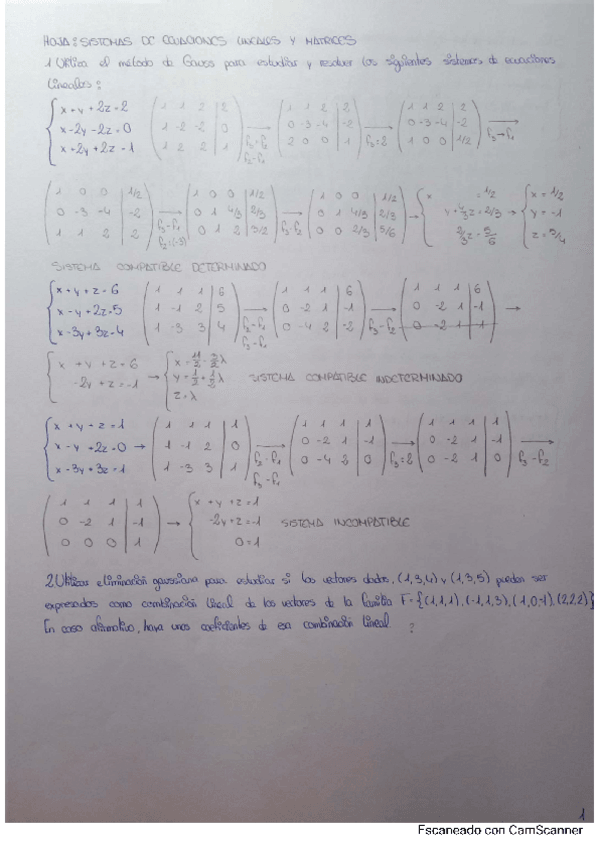 HOJA: SISTEMAS DE ECUACIONES LINEALES Y MATRICES
1 Utiliza el método de Gauss para estudiar y resolver los siguientes sistemas de ecuaciones
lineales:
x+y+2z=2 ( 1 1 2 | 2
x-2y-2z=0 1 -2 -2 | 0
x+2y+2z=1 1 2 2 | 1 ) → ( 1 1 2 | 2
0 -3 -4 | -2
2 0 0 | 1 ) f3:2 → ( 1 1 2 | 2
0 -3 -4 | -2
1 0 0 | 1/2 )
( 1 0 0 | 1/2
0 -3 -4 | -2
1 1 2 | 2 ) → ( 1 0 0 | 1/2
0 1 4/3 | 2/3
0 1 2 | 3/2 ) f3-f2 → ( 1 0 0 | 1/2
0 1 4/3 | 2/3
0 0 2/3 | 5/6 ) → x = 1/2
y+4/3z=2/3
2/3z=5/6 → x=1/2
y=-1
z=5/4
SISTEMA COMPATIBLE DETERMINADO
x+y+z=6
x-y+2z=5
x-3y+3z=4 ( 1 1 1 | 6
1 -1 2 | 5
1 -3 3 | 4 ) f2-f1 f3-f1 → ( 1 1 1 | 6
0 -2 1 | -1
0 -4 2 | -2 ) → ( 1 1 1 | 6
0 -2 1 | -1
0 -2 1 | -1 ) →
x+y+z=6
-2y+z=-1 → x=11/2-3/2λ
y=1/2+1/2λ
z=λ SISTEMA COMPATIBLE INDETERMINADO
x+y+z=1
x-y+2z=0
x-3y+3z=1 → ( 1 1 1 | 1
1 -1 2 | 0
1 -3 3 | 1 ) f2-f1 f3-f1 → ( 1 1 1 | 1
0 -2 1 | -1
0 -4 2 | 0 ) f3:2 → ( 1 1 1 | 1
0 -2 1 | -1
0 -2 1 | 0 ) f3-f2 →
( 1 1 1 | 1
0 -2 1 | -1
0 0 0 | 1 ) → x+y+z=1
-2y+z=-1
0=1 SISTEMA INCOMPATIBLE
2. Utilizar eliminación gaussiana para estudiar si los vectores dados, (1,3,4) y (1,3,5) pueden ser
expresados como combinación lineal de los vectores de la familia F={(1,1,1),(-1,1,3),(1,0,-1),(2,2,2)}
En caso afirmativo, haya unos coeficientes de esa combinación lineal. ?
1
Escaneado con CamScanner